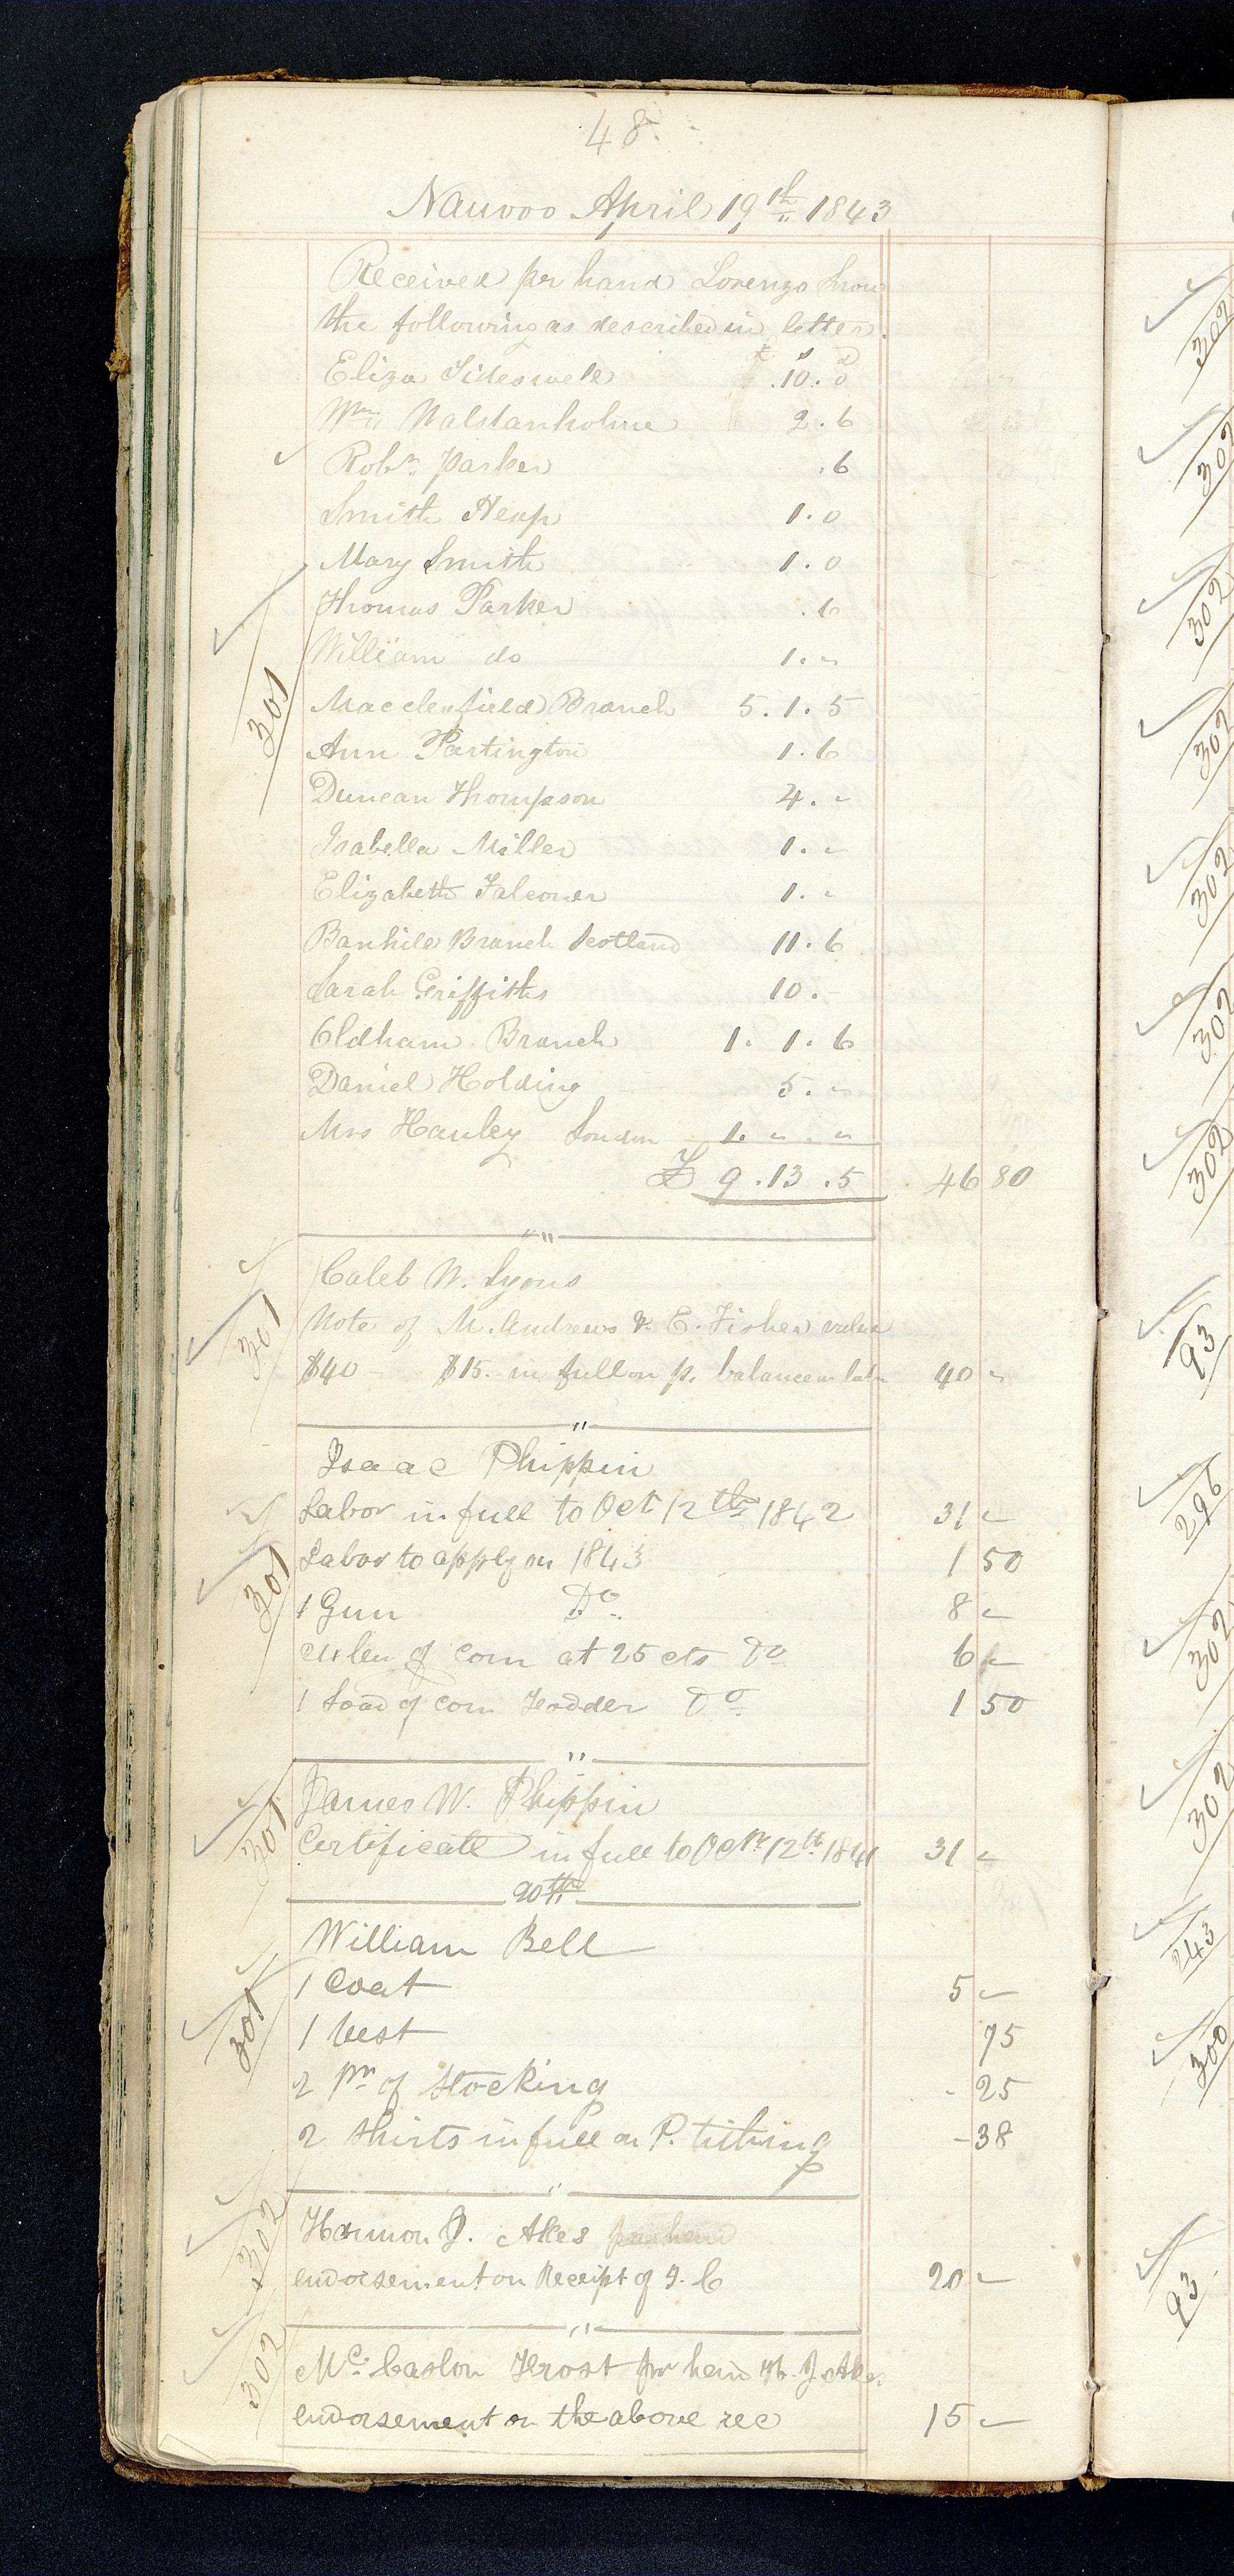 48.
Nauvoo April 19th 1843
Received per hand Lorenzo Snow
the following as described in letter.
£ s D
Eliza Sideswell .10.0
Wm Walstanholme 2.6
Robt. Parker .6
Smith Heap 1.0
Mary Smith 1.0
Thomas Parker .6
301
William do 1."
Macclesfield Branch 5.1.5
Ann Partington 1.6
Duncan Thompson 4."
Isabella Miller 1."
Elizabeth Falconer 1."
Banhill Branch Scotland 11.6
Sarah Griffiths 10.-
Oldham Branch 1.1.6
Daniel Holding 5."
Mrs Hanley London 1.".."
£ 9.13.5 46 80
"
Caleb W. Lyons
301
Note of M. Andrews & E. Fisher value
$40 - $15. in full on p. balance on 40 "
"
Isaac Phippin
Labor in full to Oct 12th 1842 31 "
301
Labor to apply on 1843 1 50
1 Gun Do. 8 "
24 bu of corn at 25 cts Do 6 "
1 Load of corn Fodder Do 1 50
"
James W. Phippin
301
Certificate in full to Octr 12th 1841 31 "
20th
William Bell
1 Coat 5 "
301
1 Vest 75
2 pr of Stocking - 25
2 Shirts in full on P. tithing - 38
"
302
Harmon J. Akes per hand
endorsement on Receipt of 20 "
"
302
Mc. Caslon Frost per hand H. J. Akes
endorsement on the above rec 15 "
302
302
302
302
302
302
302
93
296
302
302
243
300
93